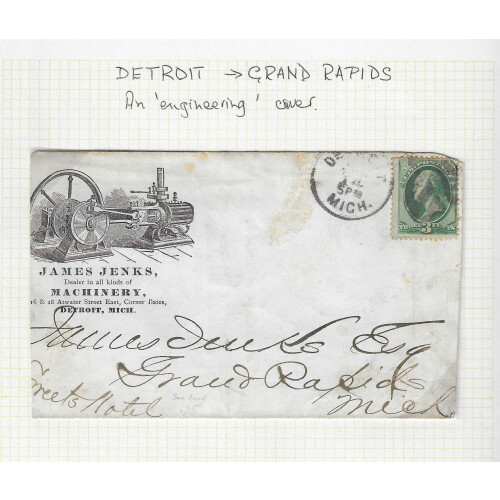 DETROIT → GRAND RAPIDS
An 'engineering' cover.
DE
5PM
MICH.
3
JAMES JENKS,
Dealer in all kinds of
MACHINERY,
16 & 18 Atwater Street East, Corner Bates,
DETROIT, MICH.
James Jenks Esq
Grand Rapids
Mich
Sweets Hotel